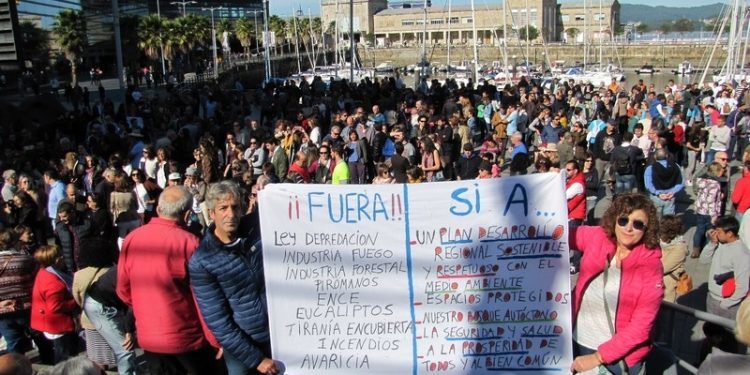 ¡¡FUERA!!
LEY DEPREDACIÓN
INDUSTRIA FUEGO
INDUSTRIA FORESTAL
PIRÓMANOS
ENCE
EUCALIPTOS
TIRANÍA ENCUBIERTA
INCENDIOS
AVARICIA
SI A...
-UN PLAN DESARROLLO
REGIONAL SOSTENIBLE
Y RESPETUOSO CON EL
MEDIO AMBIENTE
-ESPACIOS PROTEGIDOS
-NUESTRO BOSQUE AUTÓCTONO
-LA SEGURIDAD Y SALUD
-A LA PROSPERIDAD DE
TODOS Y AL BIEN COMÚN